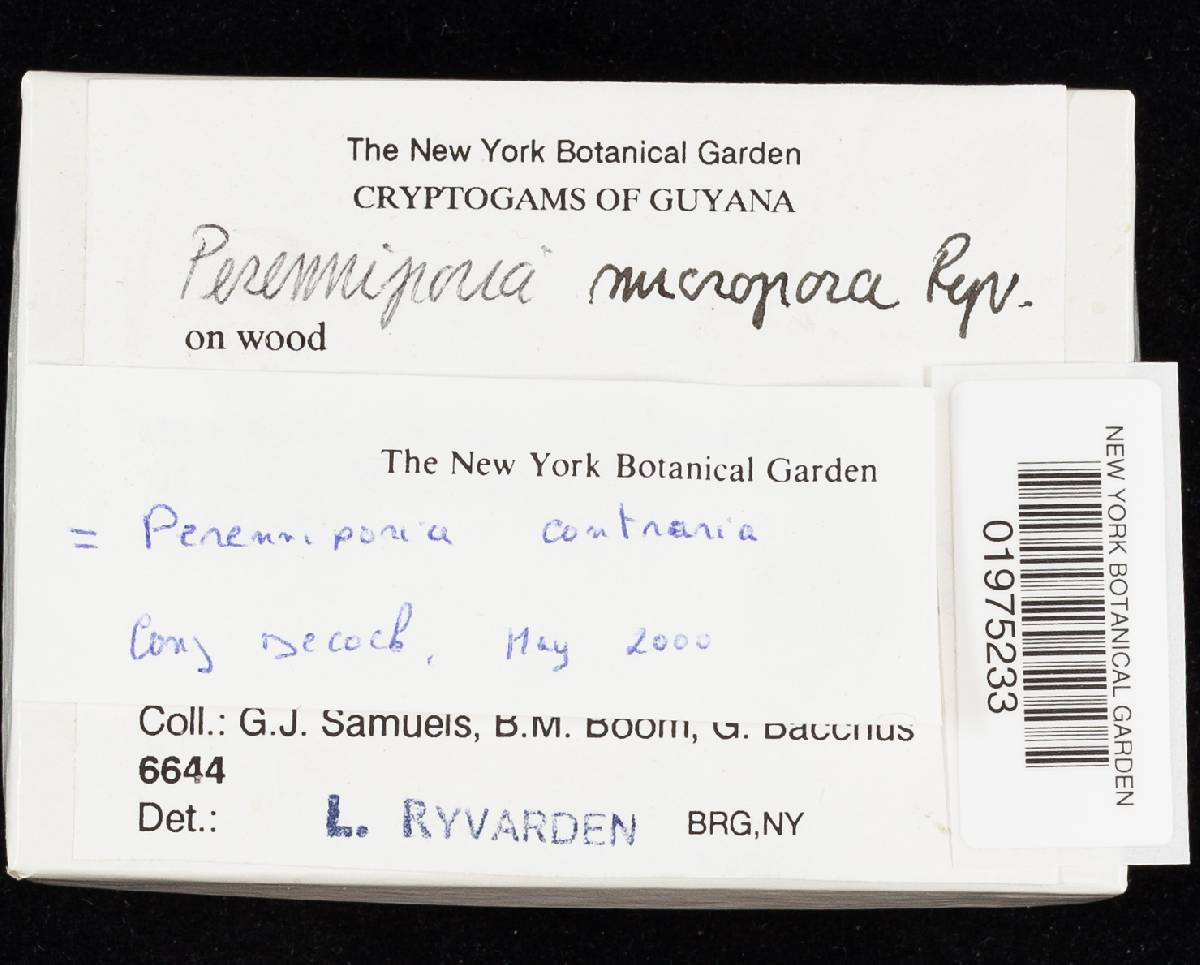 The New York Botanical Garden
CRYPTOGAMS OF GUYANA
Perenniporia micropora Ryv.
on wood
The New York Botanical Garden
= Perenniporia contraria
Cony Decock, May 2000
Coll.: G.J. Samuels, B.M. Boom, G. Bacchus
6644
Det.: L. RYVARDEN BRG,NY
NEW YORK BOTANICAL GARDEN
01975233